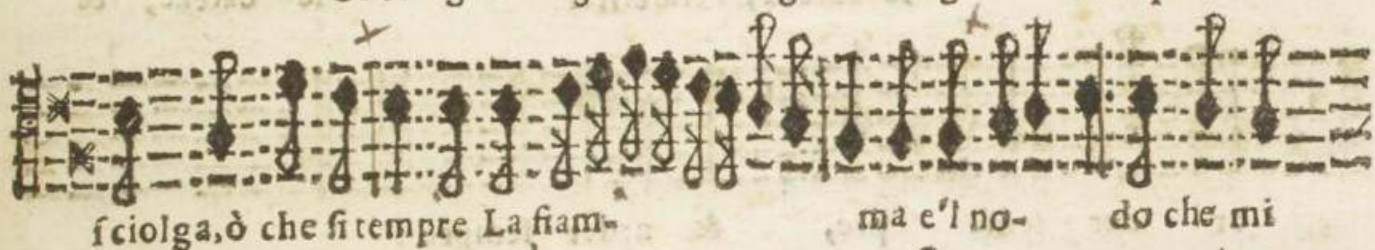 ſciolga,ò che ſi tempre La fiam- ma e'l no- do che mi